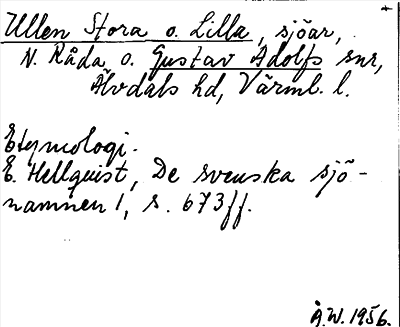 Ullen Stora o. Lilla, sjöar,
N. Råda o. Gustav Adolfs snr,
Älvdals hd, Värml. l.
Etymologi.
E. Hellquist, De svenska sjö-
namnen 1, s. 673ff.
Å.W. 1956.